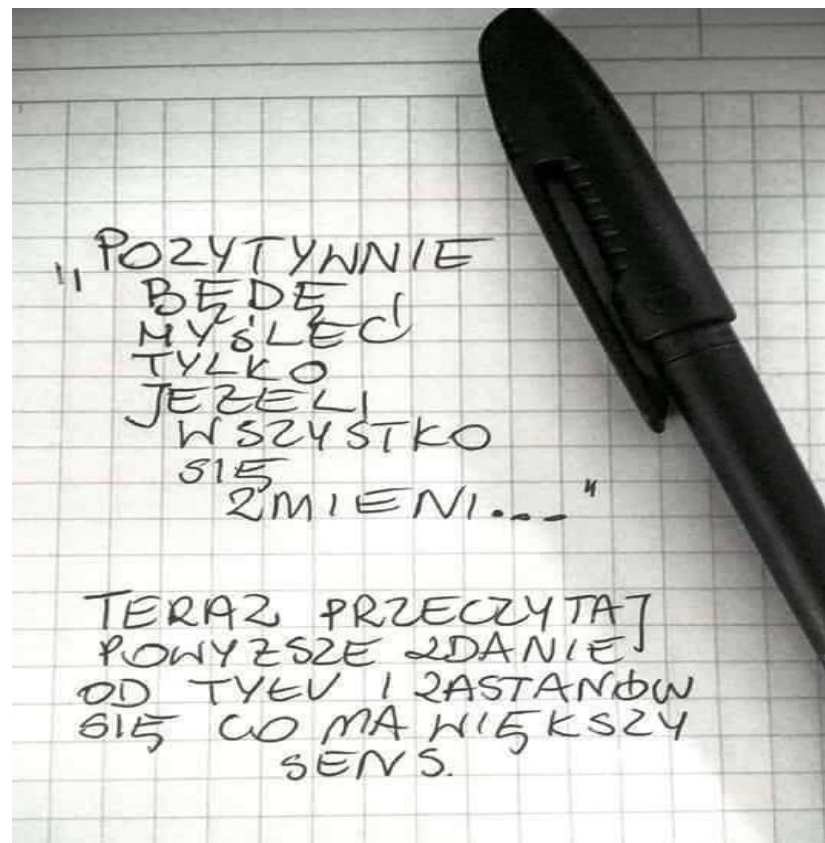 „POZYTYWNIE
BĘDĘ
MYŚLEĆ
TYLKO
JEŻELI
WSZYSTKO
SIĘ
ZMIENI..."
TERAZ PRZECZYTAJ
POWYŻSZE ZDANIE
OD TYŁU I ZASTANÓW
SIĘ CO MA WIĘKSZY
SENS.